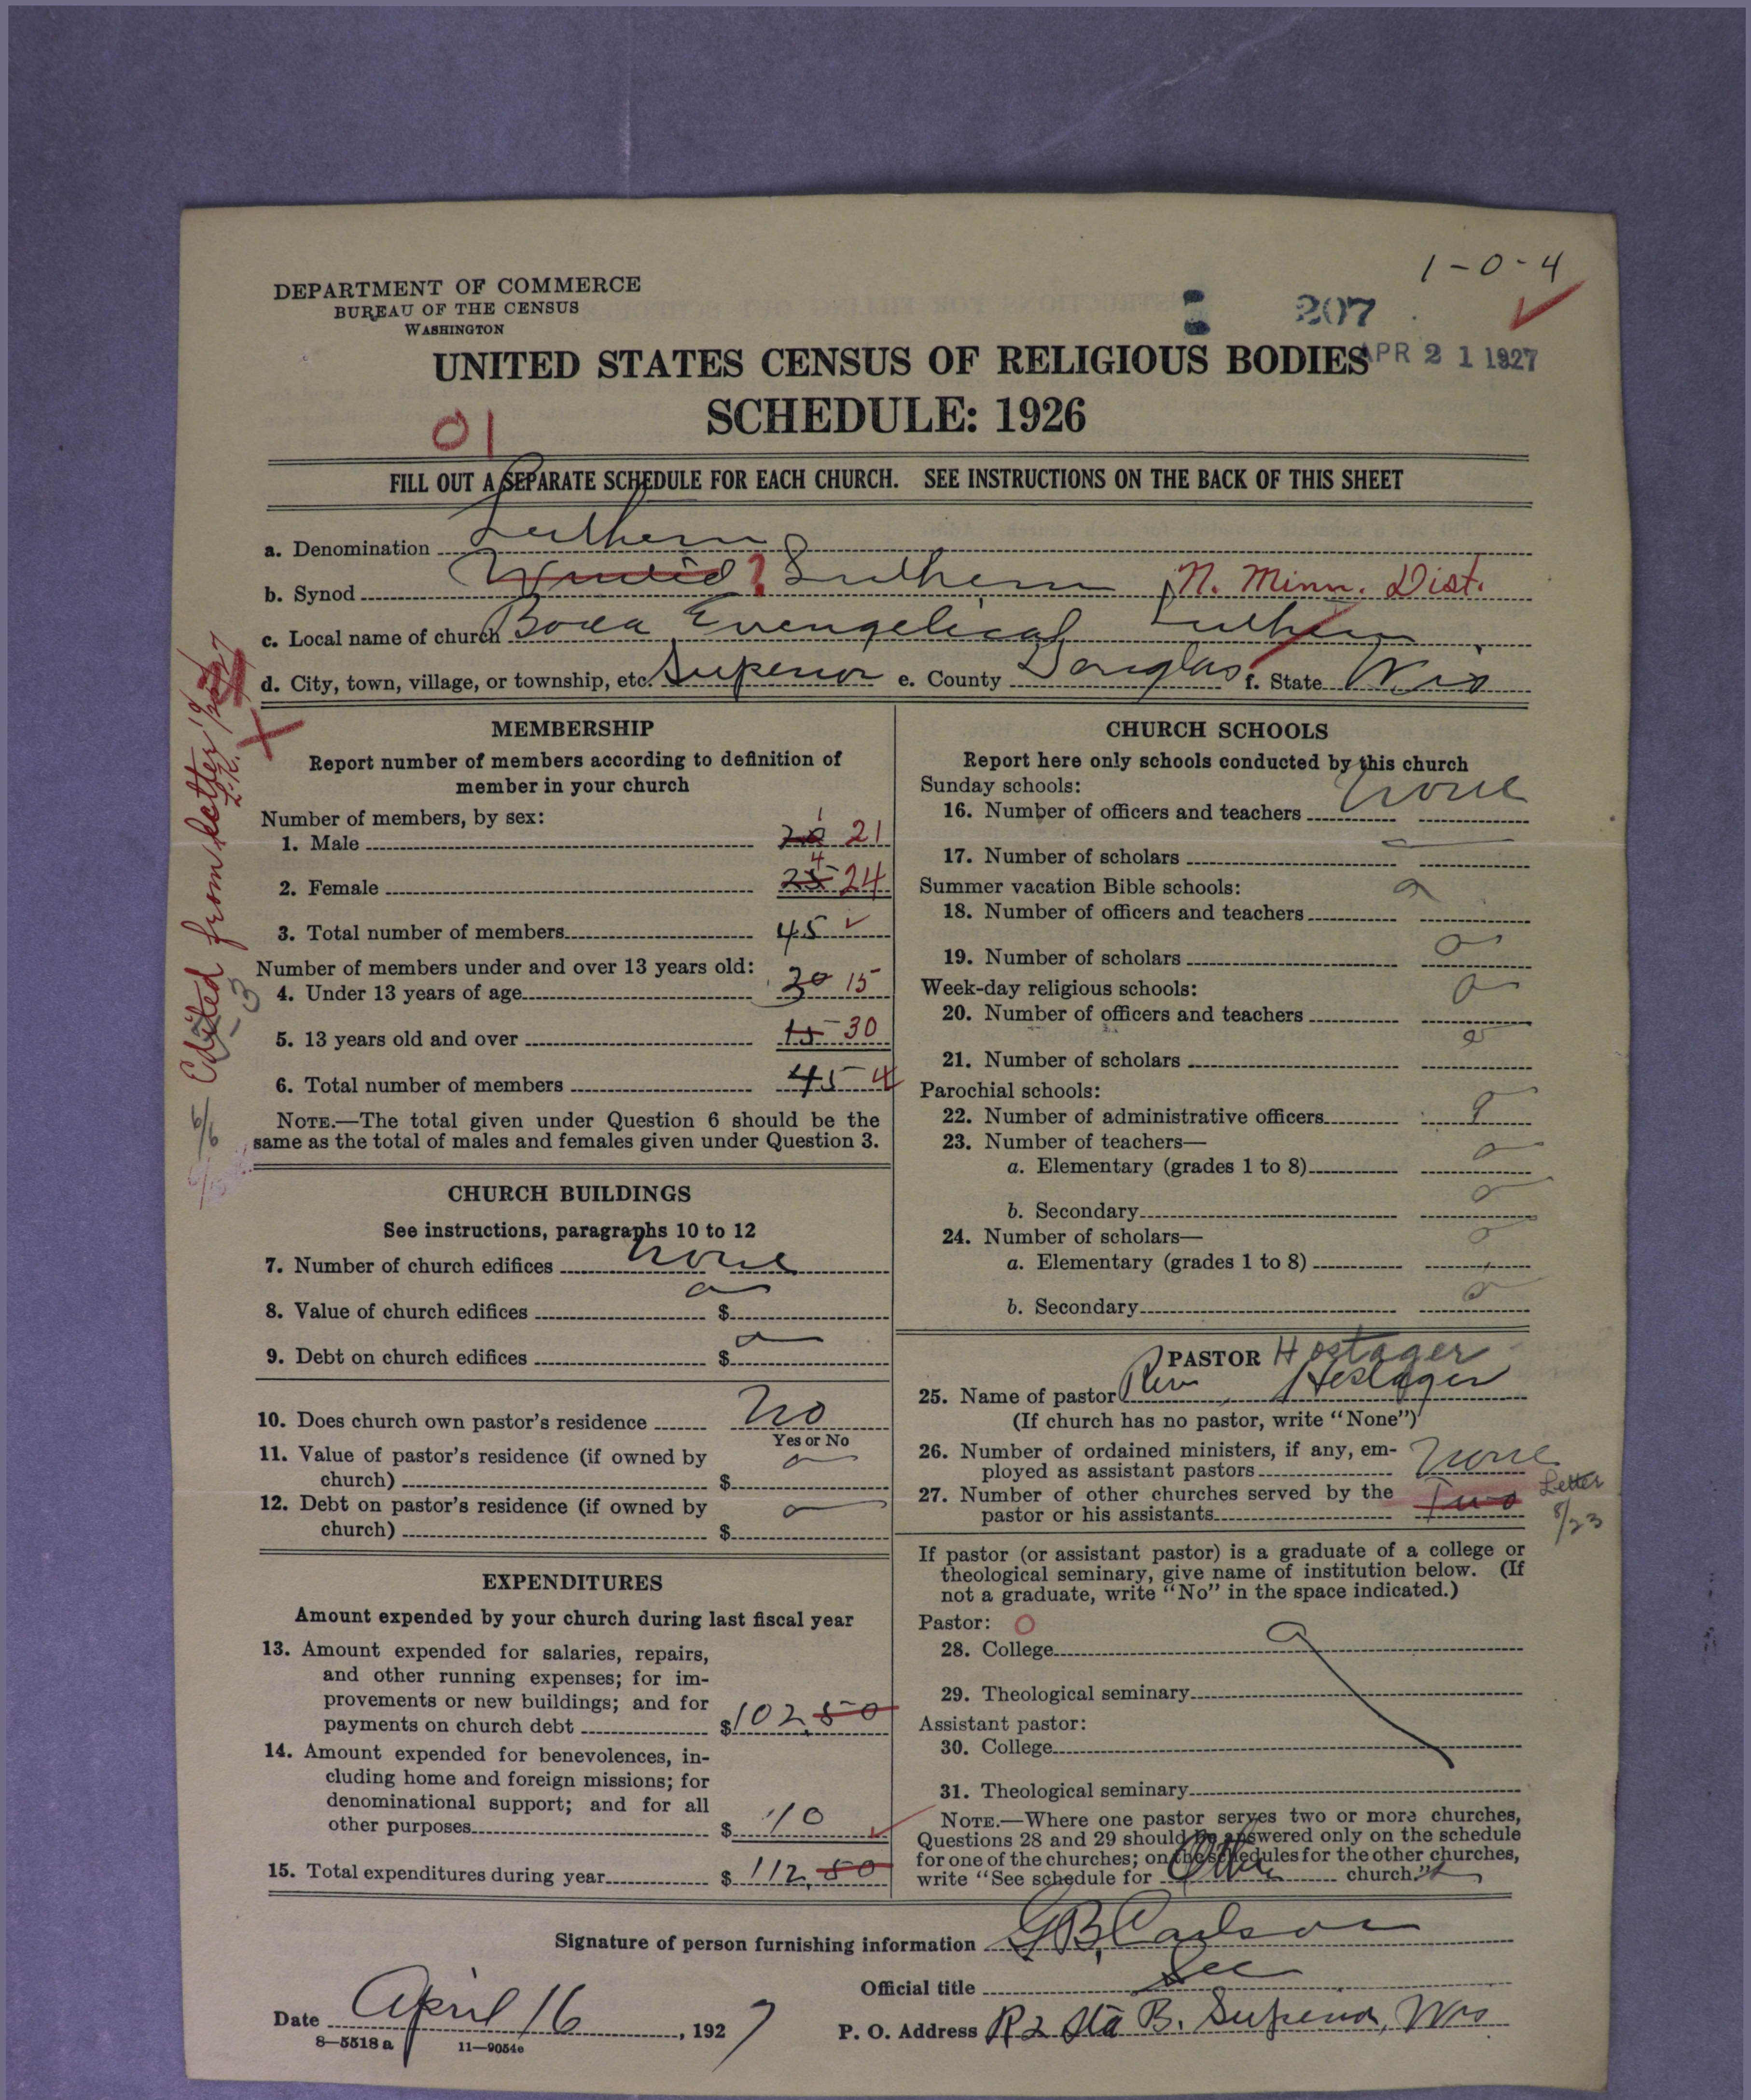 1-0-4
DEPARTMENT OF COMMERCE
BUREAU OF THE CENSUS
WASHINGTON
207
APR 21 1927
UNITED STATES CENSUS OF RELIGIOUS BODIES
SCHEDULE: 1926
01
FILL OUT A SEPARATE SCHEDULE FOR EACH CHURCH. SEE INSTRUCTIONS ON THE BACK OF THIS SHEET
a. Denomination Luthern
b. Synod ? Luthern N. Minn. Dist.
c. Local name of church Evengelical Luthern
d. City, town, village, or township, etc. Superior e. County Douglas f. State Wis
Edited from letter
MEMBERSHIP
Report number of members according to definition of
member in your church
Number of members, by sex:
1. Male 20 1 21
2. Female 25 4 24
3. Total number of members 45
Number of members under and over 13 years old:
4. Under 13 years of age 30 15
5. 13 years old and over 15 30
6. Total number of members 45
NOTE.—The total given under Question 6 should be the
same as the total of males and females given under Question 3.
CHURCH BUILDINGS
See instructions, paragraphs 10 to 12
7. Number of church edifices none
8. Value of church edifices $ 0
9. Debt on church edifices $ 0
10. Does church own pastor's residence No
Yes or No
11. Value of pastor's residence (if owned by
church) $ 0
12. Debt on pastor's residence (if owned by
church) $ 0
EXPENDITURES
Amount expended by your church during last fiscal year
13. Amount expended for salaries, repairs,
and other running expenses; for im-
provements or new buildings; and for
payments on church debt $ 102.50
14. Amount expended for benevolences, in-
cluding home and foreign missions; for
denominational support; and for all
other purposes $ 10
15. Total expenditures during year $ 112.50
CHURCH SCHOOLS
Report here only schools conducted by this church
Sunday schools:
16. Number of officers and teachers none
17. Number of scholars
Summer vacation Bible schools:
18. Number of officers and teachers 0
19. Number of scholars 0
Week-day religious schools:
20. Number of officers and teachers 0
21. Number of scholars 0
Parochial schools:
22. Number of administrative officers 0
23. Number of teachers—
a. Elementary (grades 1 to 8) 0
b. Secondary 0
24. Number of scholars—
a. Elementary (grades 1 to 8) 0
b. Secondary 0
PASTOR Hostager
25. Name of pastor Rev Heslager
(If church has no pastor, write "None")
26. Number of ordained ministers, if any, em-
ployed as assistant pastors none
27. Number of other churches served by the
pastor or his assistants Two Letter 8/23
If pastor (or assistant pastor) is a graduate of a college or
theological seminary, give name of institution below. (If
not a graduate, write "No" in the space indicated.)
Pastor: 0
28. College 0
29. Theological seminary
Assistant pastor:
30. College
31. Theological seminary
NOTE.—Where one pastor serves two or more churches,
Questions 28 and 29 should be answered only on the schedule
for one of the churches; on the schedules for the other churches,
write "See schedule for Other church."
Signature of person furnishing information G B Carlson
Official title Sec
Date April 16, 1927 P. O. Address R 2 Sta B. Superior, Wis
8—5518 a 11—9054e